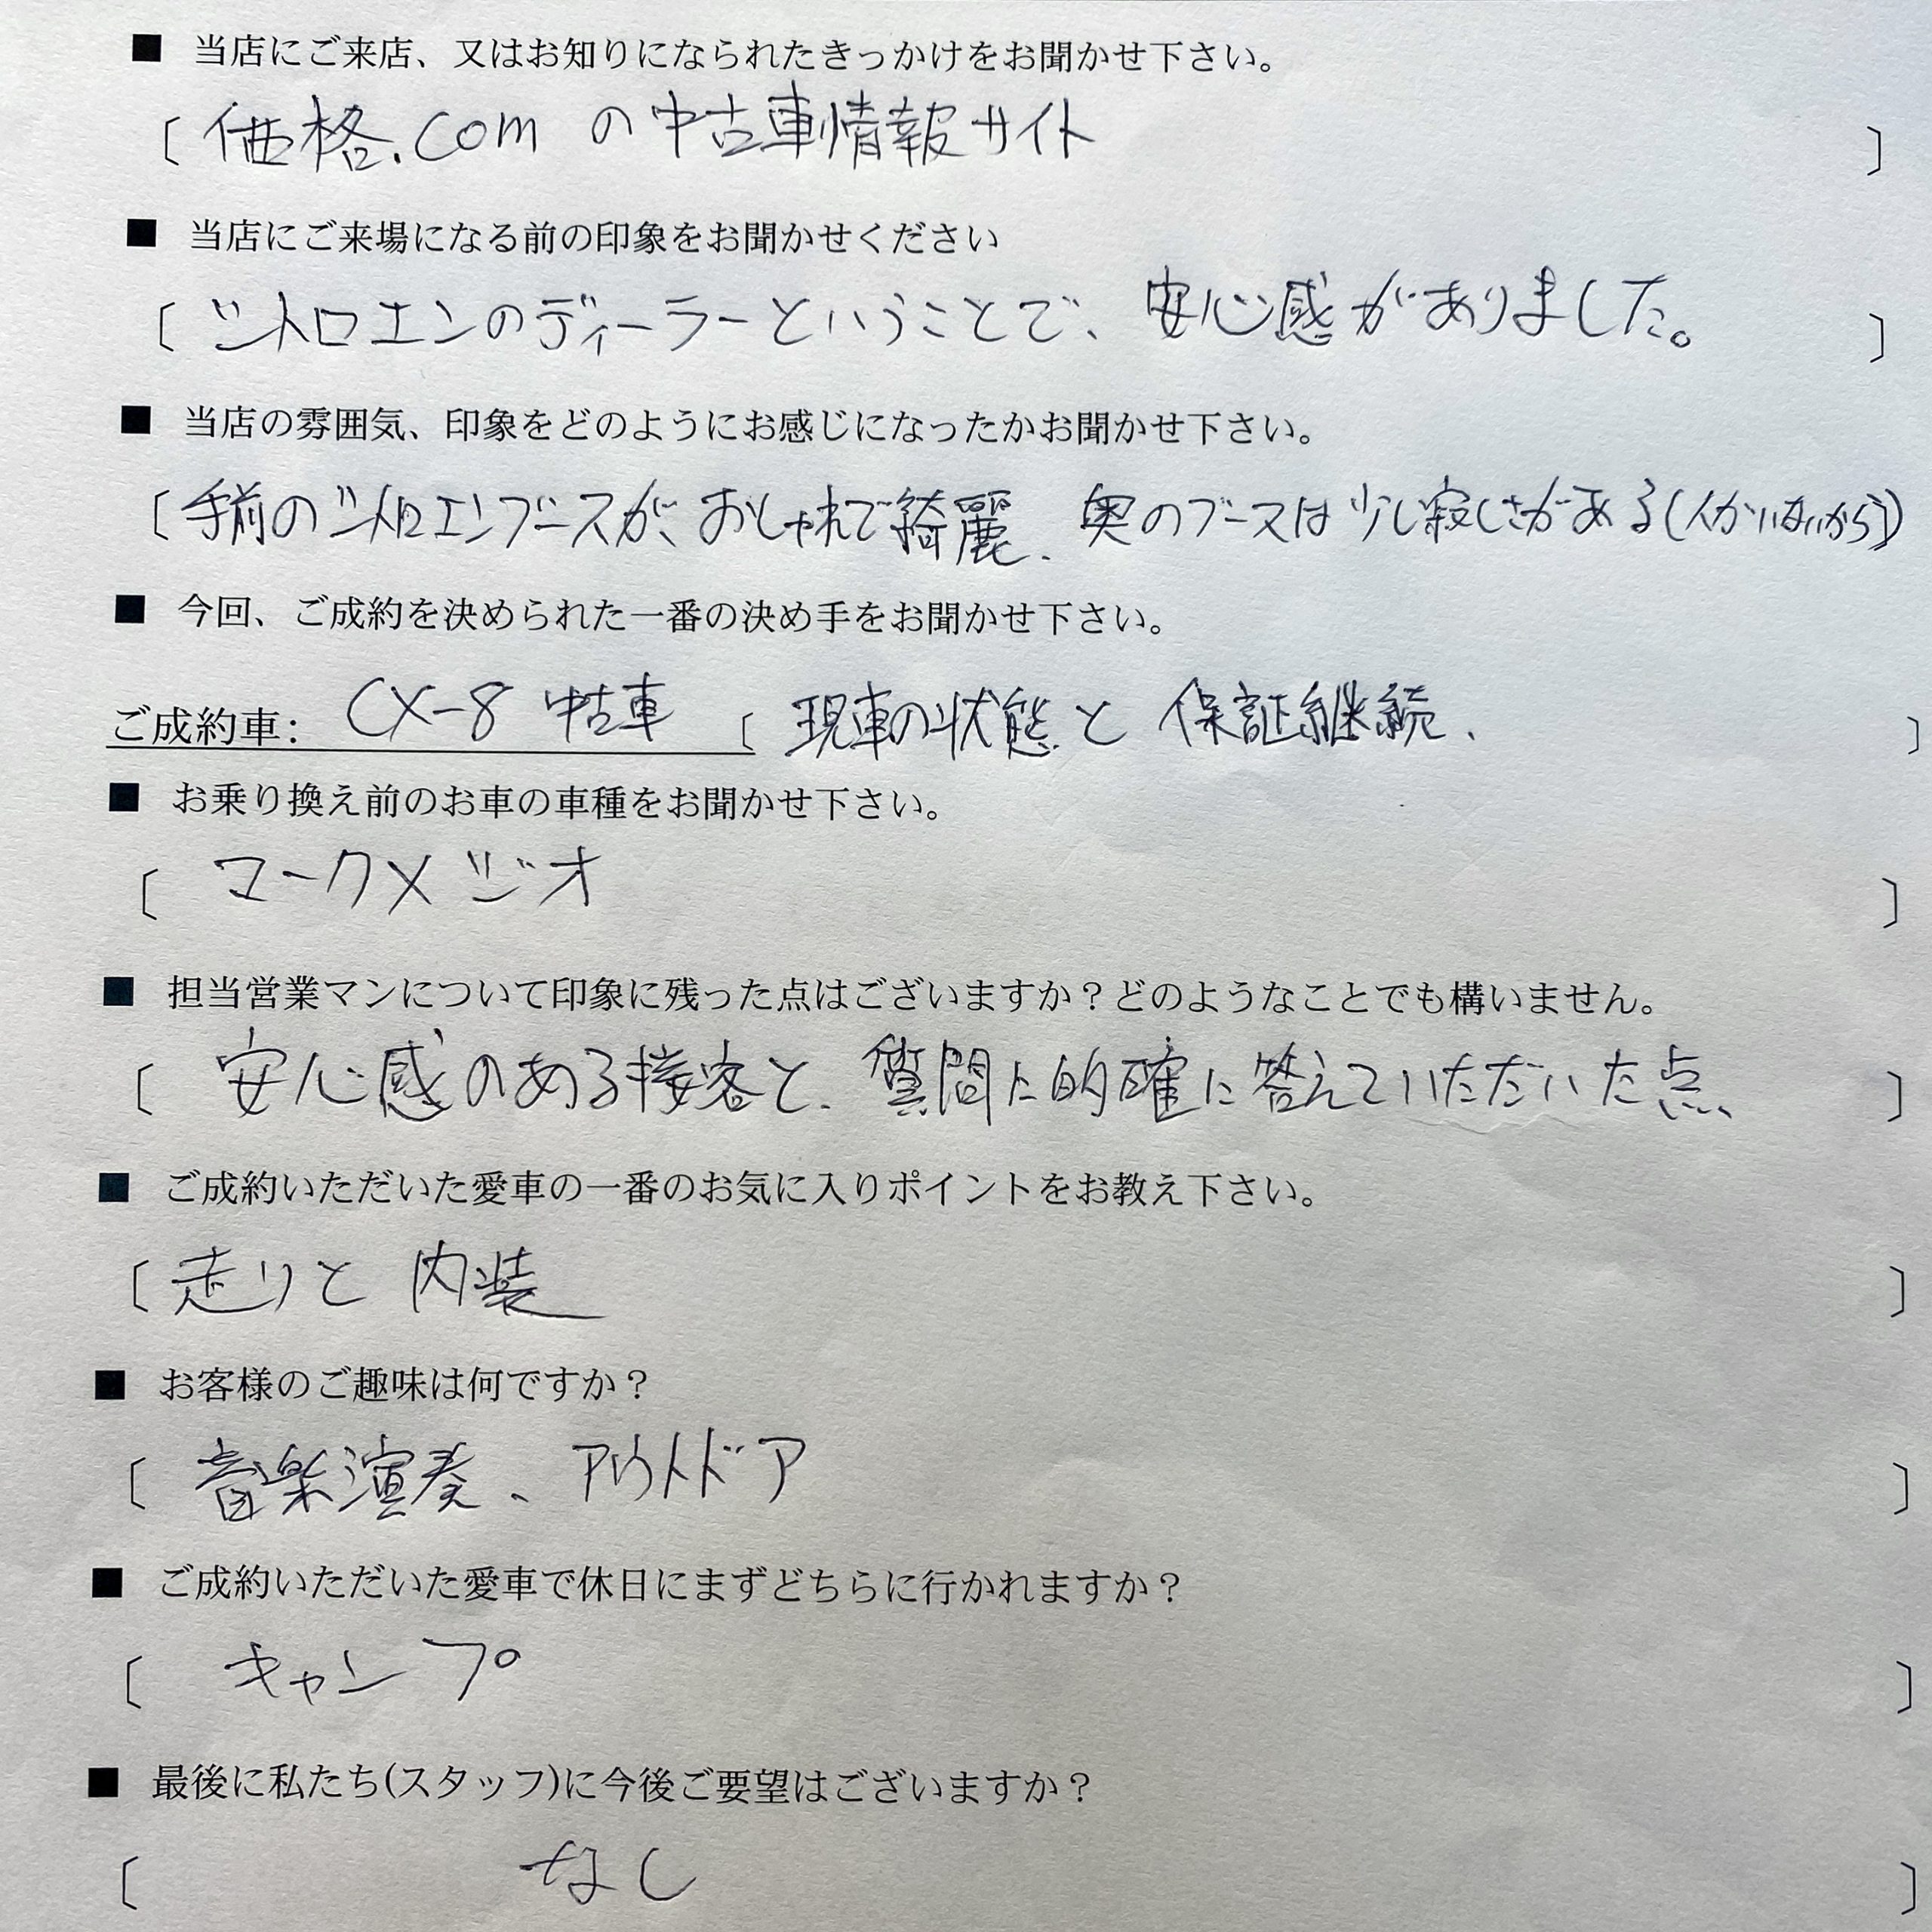 ■ 当店にご来店、又はお知りになられたきっかけをお聞かせ下さい。
〔 価格.com の中古車情報サイト 〕
■ 当店にご来場になる前の印象をお聞かせください
〔 シトロエンのディーラーということで、安心感がありました。 〕
■ 当店の雰囲気、印象をどのようにお感じになったかお聞かせ下さい。
〔 手前のシトロエンブースが、おしゃれで綺麗、奥のブースは少し寂しさがある(人がいないから) 〕
■ 今回、ご成約を決められた一番の決め手をお聞かせ下さい。
ご成約車: CX-8 中古車 〔 現車の状態と 保証継続、 〕
■ お乗り換え前のお車の車種をお聞かせ下さい。
〔 マークXジオ 〕
■ 担当営業マンについて印象に残った点はございますか？どのようなことでも構いません。
〔 安心感のある接客と、質問に的確に答えていただいた点、 〕
■ ご成約いただいた愛車の一番のお気に入りポイントをお教え下さい。
〔 走りと 内装 〕
■ お客様のご趣味は何ですか？
〔 音楽演奏、アウトドア 〕
■ ご成約いただいた愛車で休日にまずどちらに行かれますか？
〔 キャンプ 〕
■ 最後に私たち(スタッフ)に今後ご要望はございますか？
〔 なし 〕